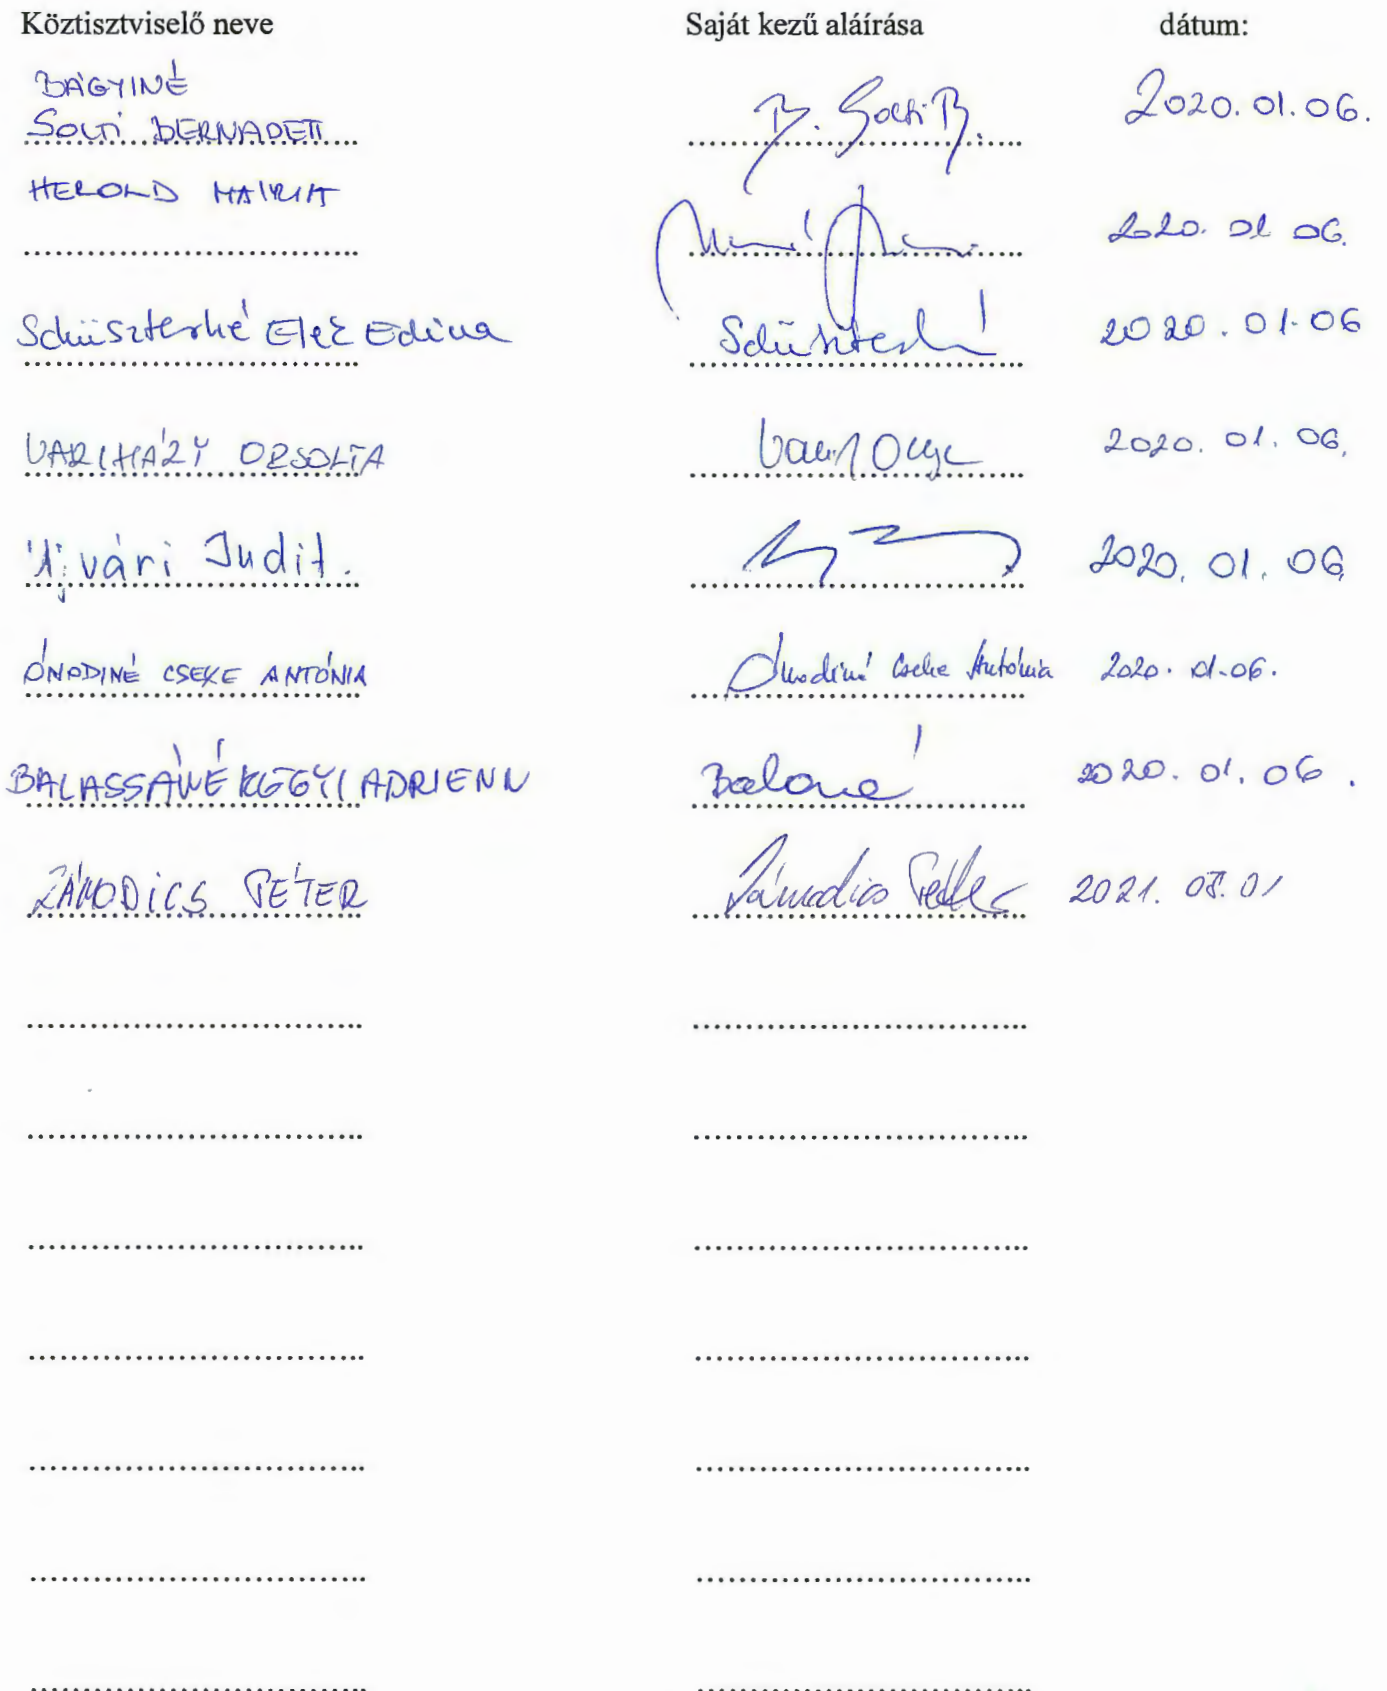 Köztisztviselő neve Saját kezű aláírása dátum:
BÁGYINÉ
SOLTI BERNADETT B. Solti B. 2020.01.06.
HEROLD MÁRIA 2020. 01 06.
Schüszterné Edina Schüszterné 2020.01.06
VÁRIHÁZY ORSOLYA 2020. 01. 06.
Újvári Judit. 2020. 01. 06
ÓNODINÉ CSEKE ANTÓNIA Ónodiné Cseke Antónia 2020. 01.06.
BALASSÁNÉ ADRIENN 2020. 01. 06.
ZÁMODICS PÉTER Zámodics Péter 2021. 01